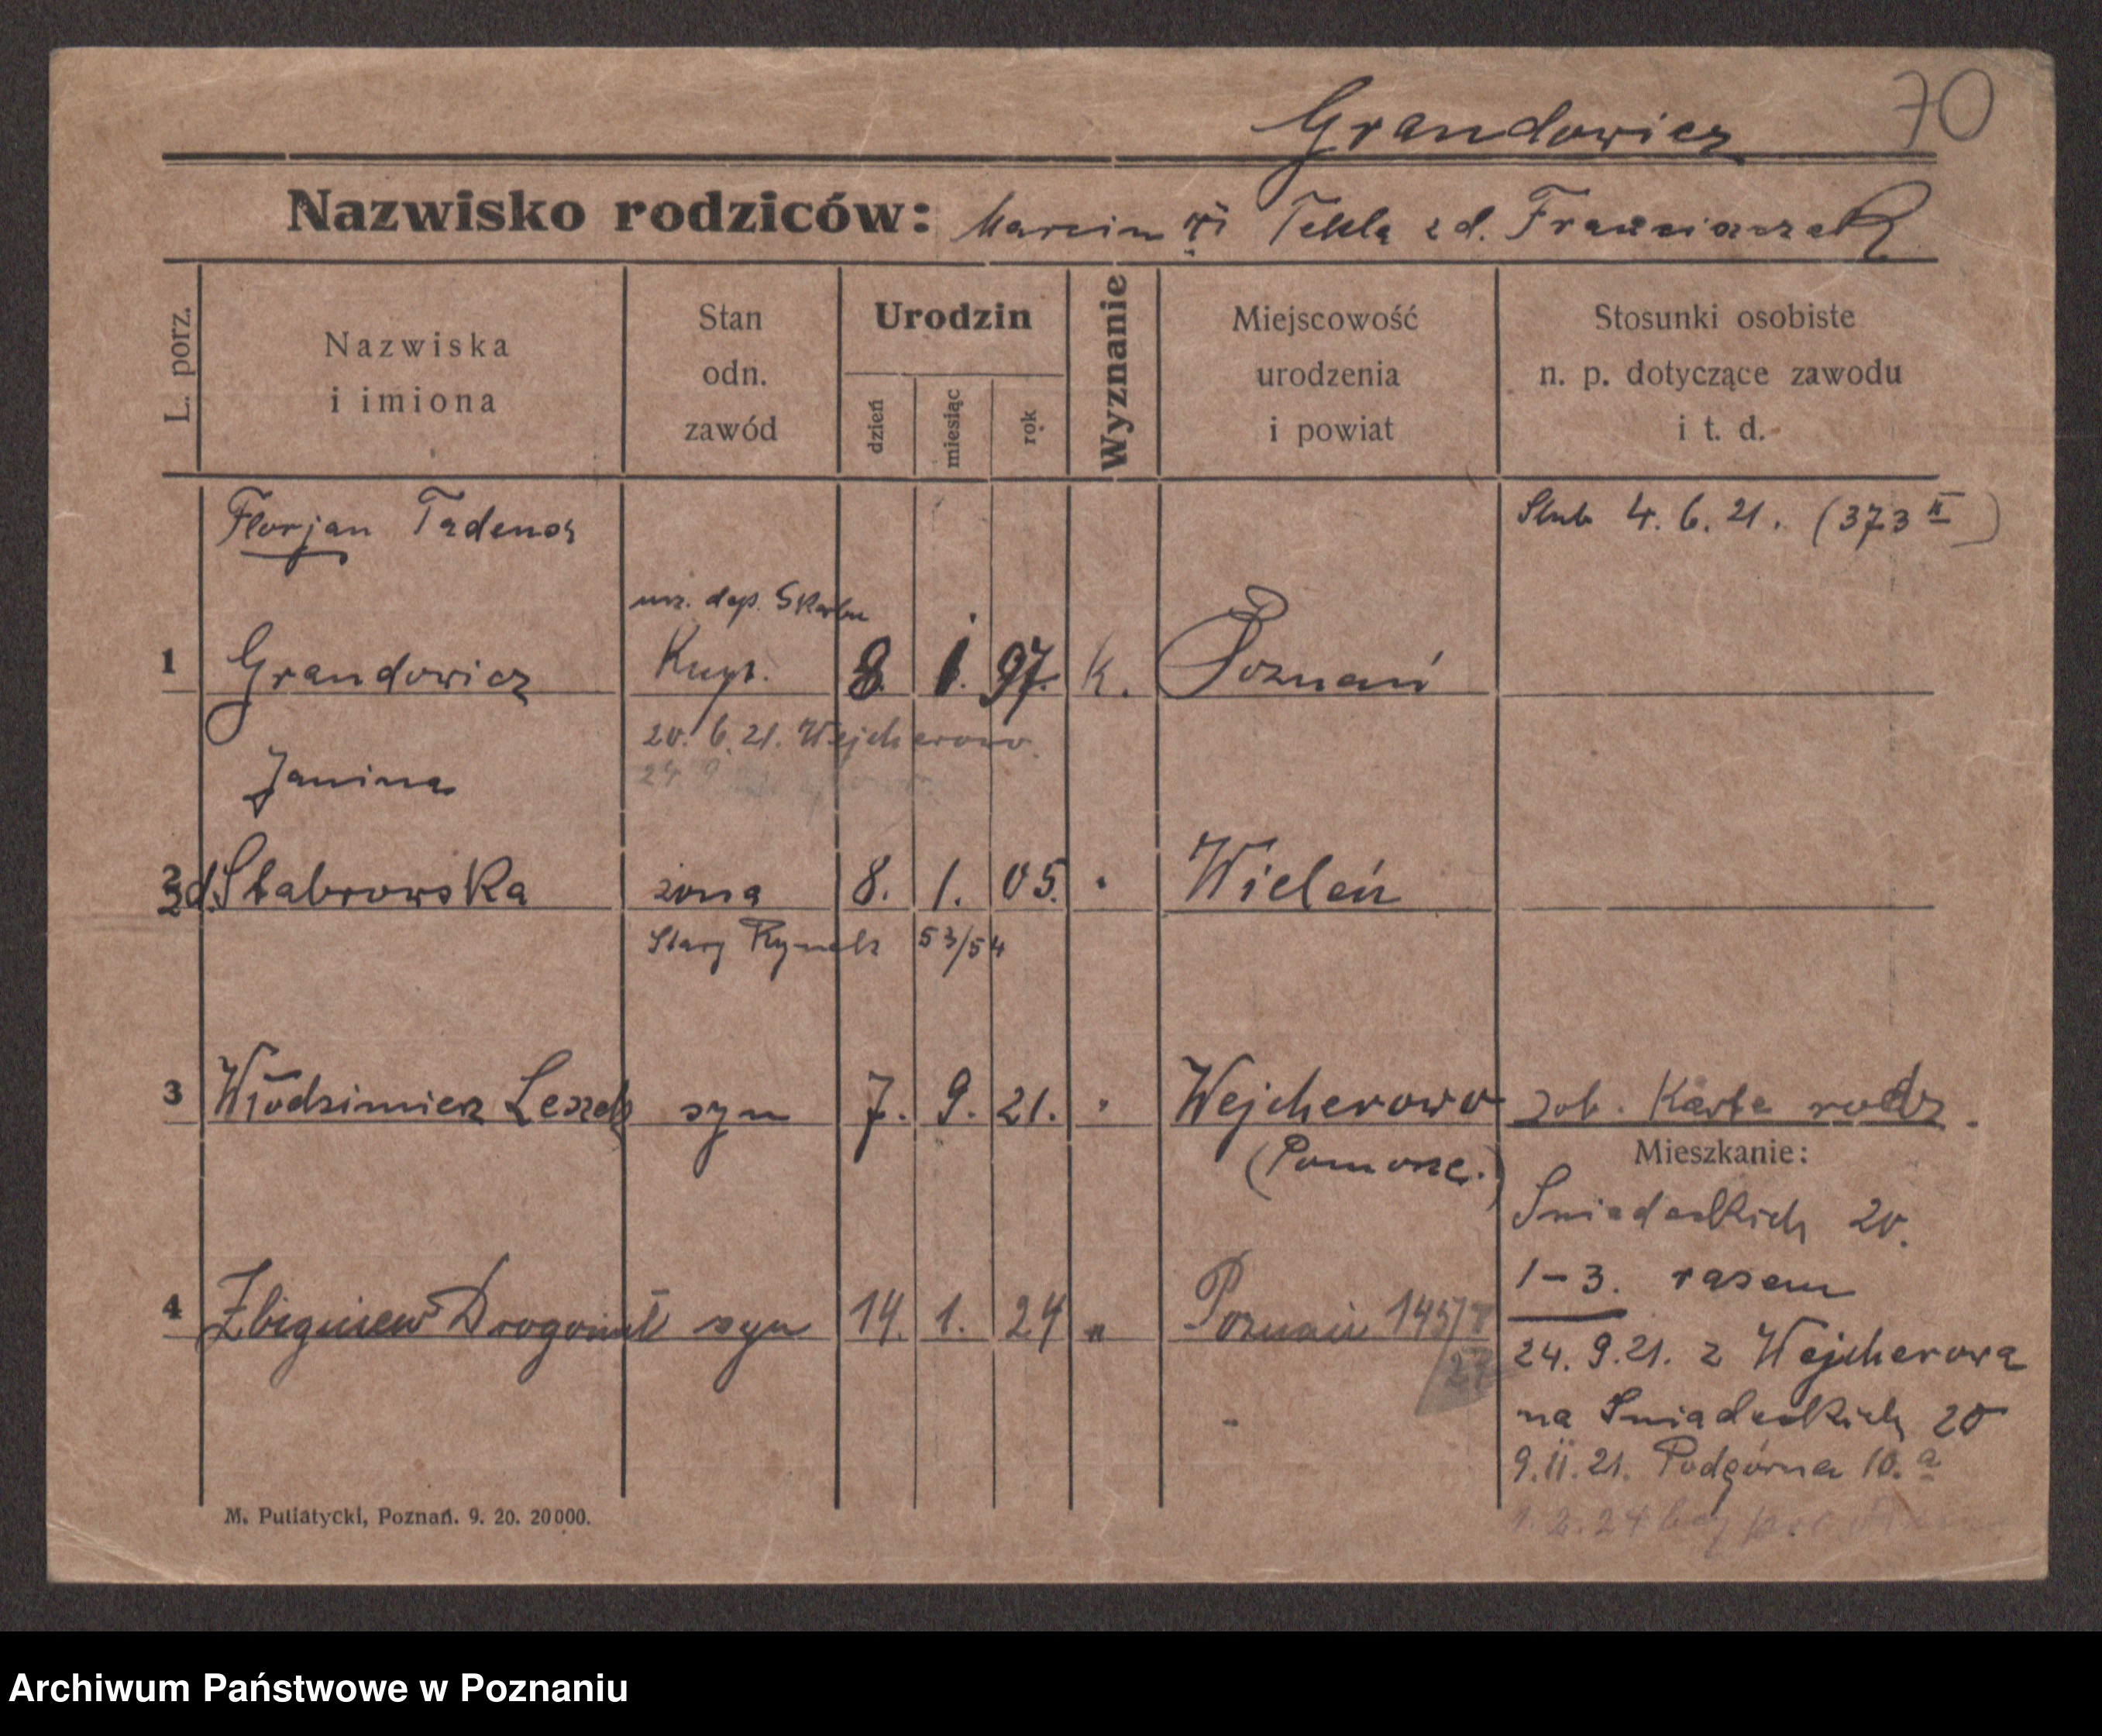 70
Grandowicz
Nazwisko rodziców: Marcin i Tekla zd. Franciszczak
L. porz.
Nazwiska
i imiona
Stan
odn.
zawód
Urodzin
dzień
miesiąc
rok
Wyznanie
Miejscowość
urodzenia
i powiat
Stosunki osobiste
n. p. dotyczące zawodu
i t. d.
Florjan Tadeusz
Ślub 4. 6. 21. (373 II)
urz. dep. Skarbu
1 Grandowicz Kupc. 8. 1. 97. k. Poznań
20. 6. 21. Wejherowo
Janina
2 zd. Stabrowska żona 8. 1. 05. " Wieleń
Stary Rynek 53/54
3 Włodzimierz Leszek syn 7. 9. 21. " Wejcherowo zob. Karta rodz.
(Pomorze.)
Mieszkanie:
Śniadeckich 20.
1-3. rasem
4 Zbigniew Drogomił syn 14. 1. 24 " Poznań 145/
24. 9. 21. z Wejcherowa
na Śniadeckich 20
9. 11. 21. Podgórna 10. a
1. 2. 24
M. Putiatycki, Poznań. 9. 20. 20000.
Archiwum Państwowe w Poznaniu